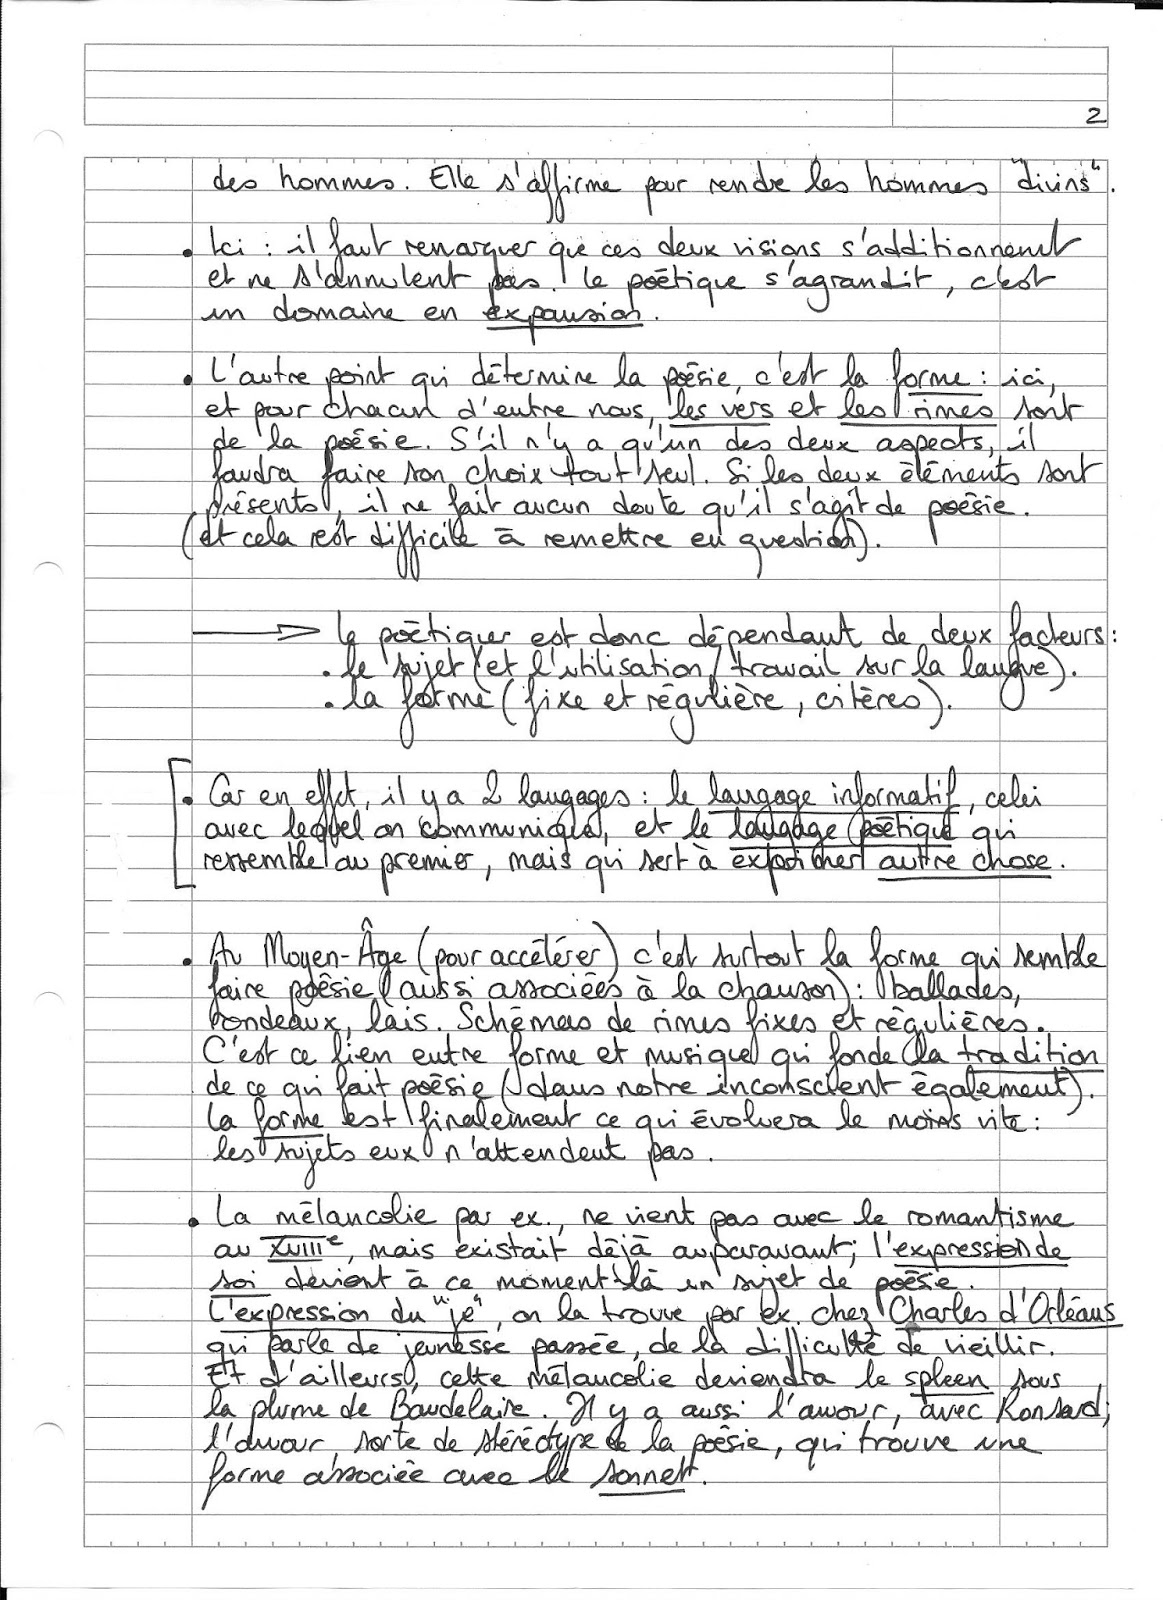 2
des hommes. Elle s'affirme pour rendre les hommes "divins".
• Ici : il faut remarquer que ces deux visions s'additionnent
et ne s'annulent pas ! Le poétique s'agrandit, c'est
un domaine en expansion.
• L'autre point qui détermine la poésie, c'est la forme : ici,
et pour chacun d'entre nous, les vers et les rimes sont
de la poésie. S'il n'y a qu'un des deux aspects, il
faudra faire son choix tout seul. Si les deux éléments sont
présents, il ne fait aucun doute qu'il s'agit de poésie.
(et cela est difficile à remettre en question).
→ Le poétique est donc dépendant de deux facteurs :
• le sujet (et l'utilisation / travail sur la langue).
• la forme (fixe et régulière, critères).
• Car en effet, il y a 2 langages : le langage informatif, celui
avec lequel on communique, et le langage poétique qui
ressemble au premier, mais qui sert à exprimer autre chose.
• Au Moyen-Âge (pour accélérer) c'est surtout la forme qui semble
faire poésie (aussi associées à la chanson) : ballades,
rondeaux, lais. Schémas de rimes fixes et régulières.
C'est ce lien entre forme et musique qui fonde la tradition
de ce qui fait poésie (dans notre inconscient également).
La forme est finalement ce qui évoluera le moins vite :
les sujets eux n'attendent pas.
• La mélancolie par ex., ne vient pas avec le romantisme
au XVIIIe, mais existait déjà auparavant ; l'expression de
soi devient à ce moment-là un sujet de poésie.
L'expression du "je", on la trouve par ex. chez Charles d'Orléans
qui parle de jeunesse passée, de la difficulté de vieillir.
Et d'ailleurs, cette mélancolie deviendra le spleen sous
la plume de Baudelaire. Il y a aussi l'amour, avec Ronsard ;
l'amour, sorte de stéréotype de la poésie, qui trouve une
forme associée avec le sonnet.